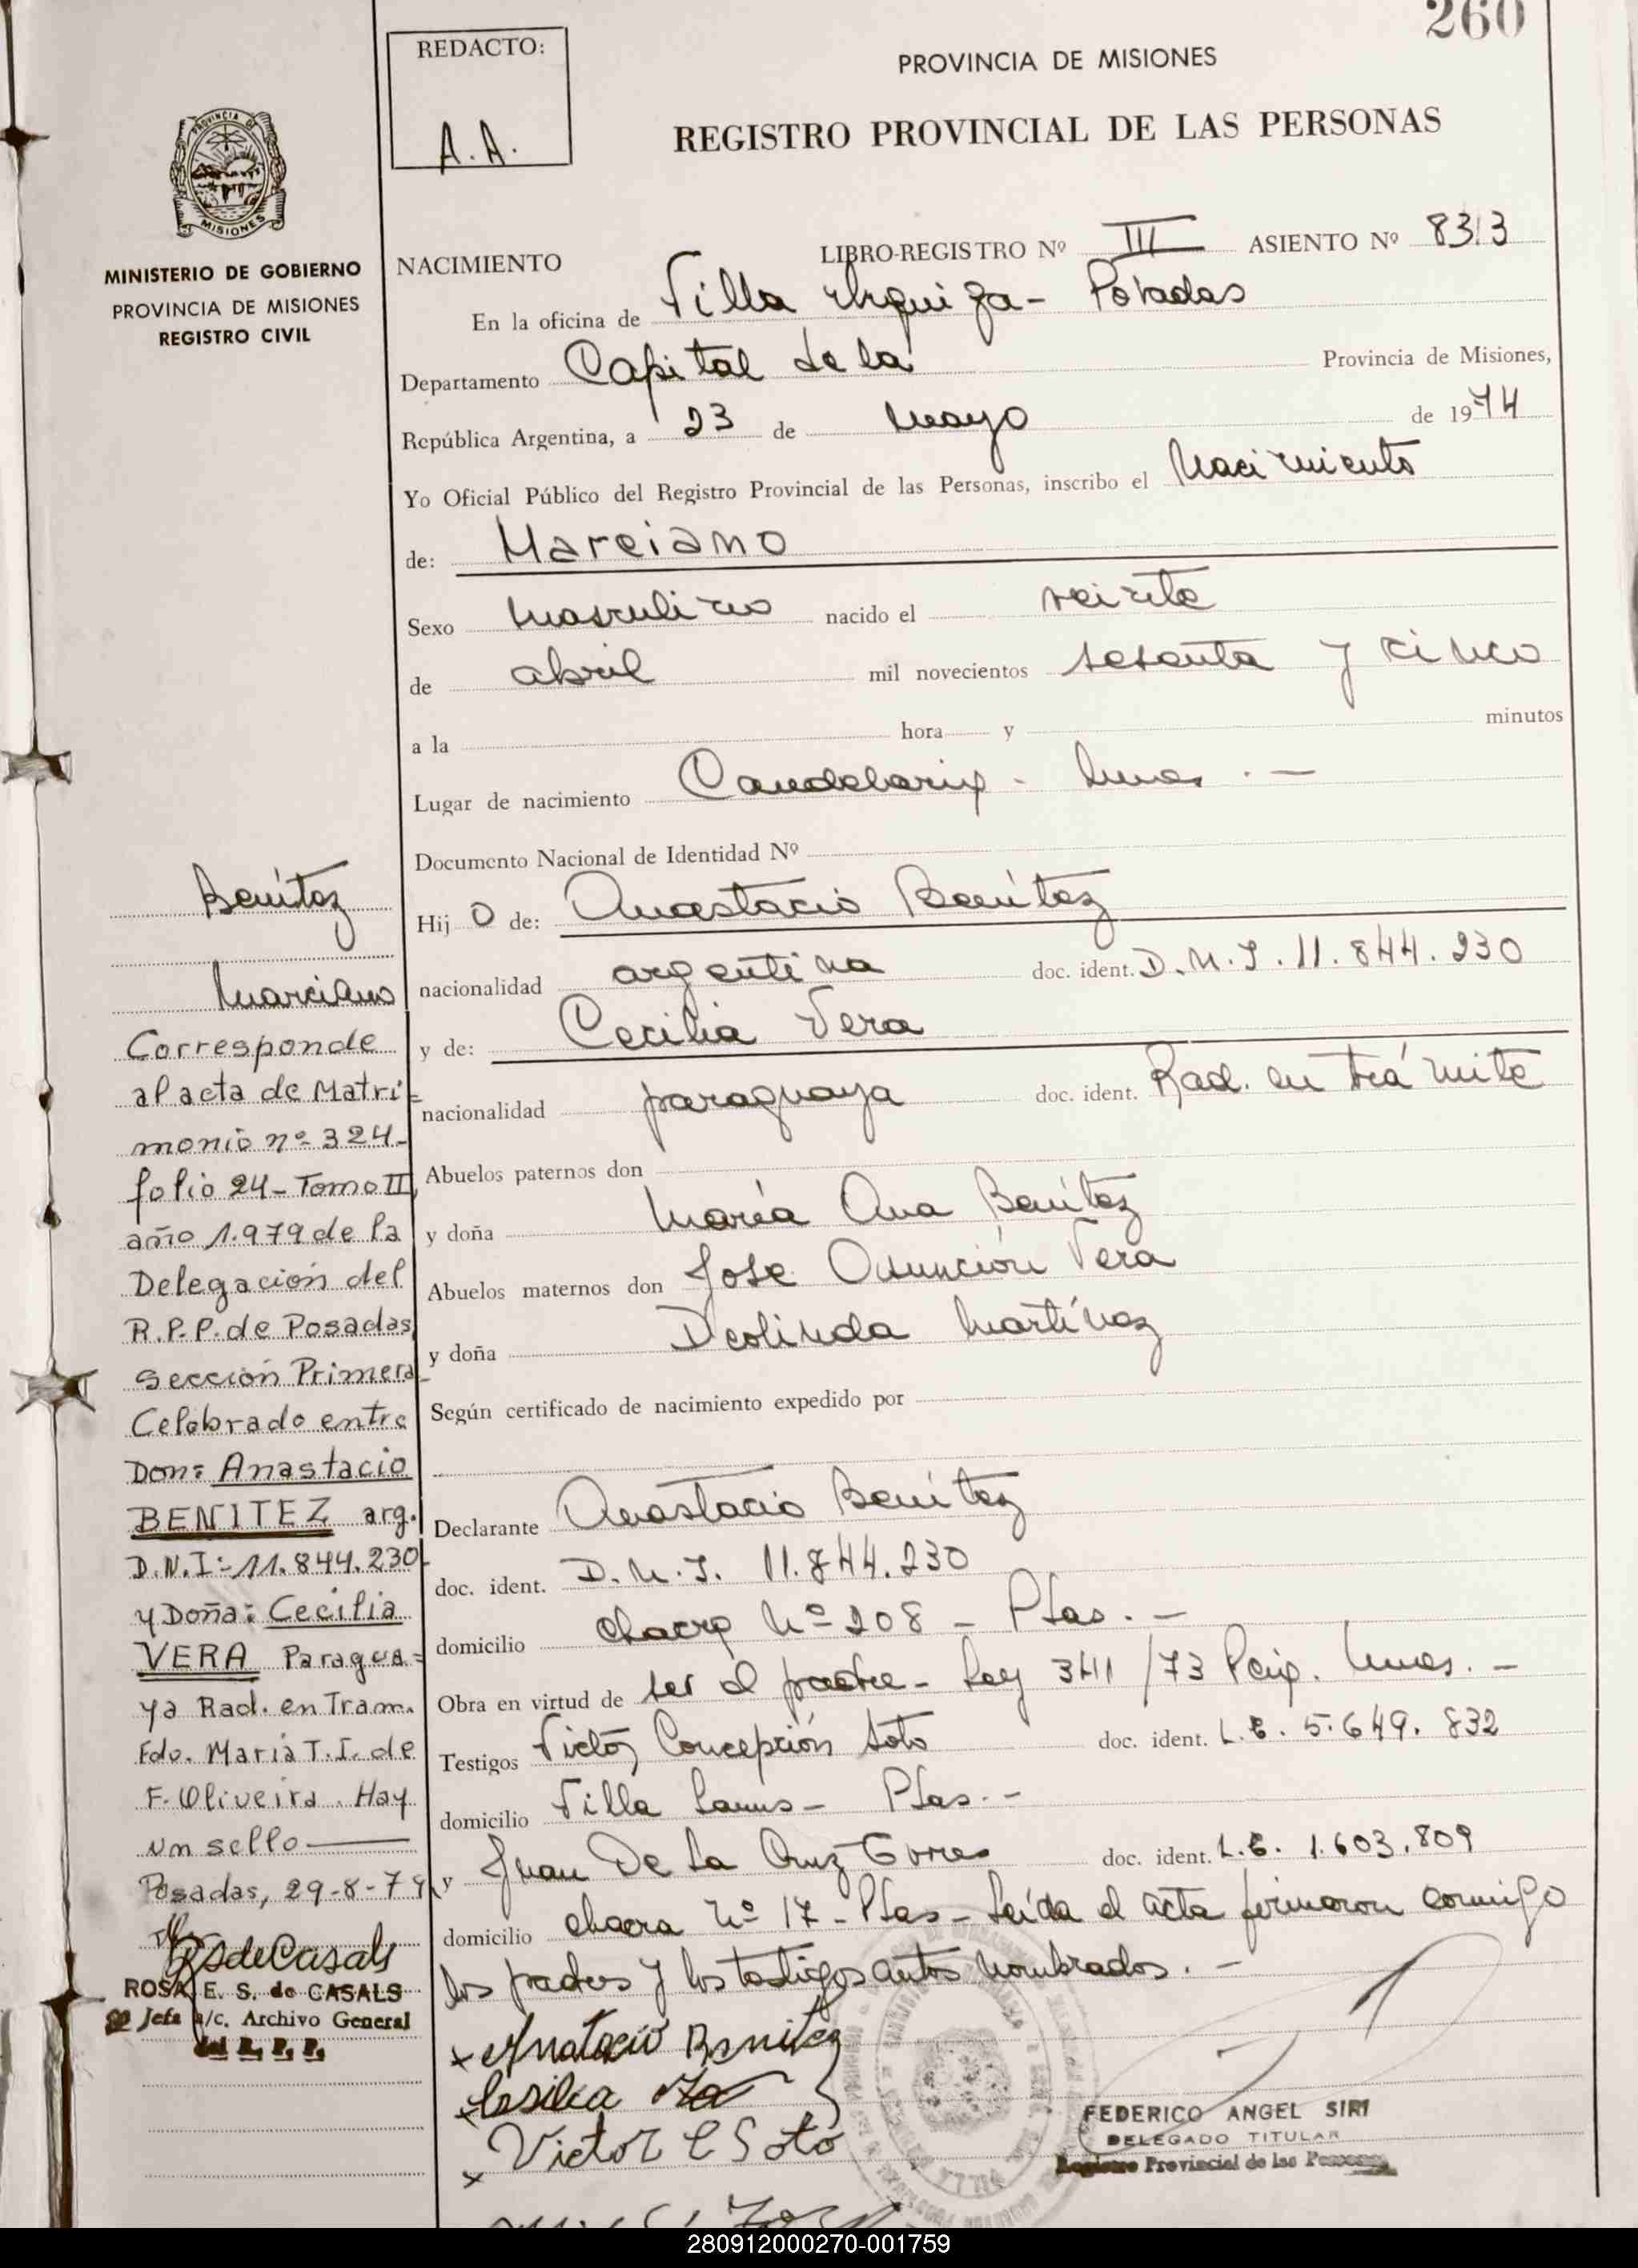 260
REDACTO:
A.A.
PROVINCIA DE MISIONES
REGISTRO PROVINCIAL DE LAS PERSONAS
PROVINCIA DE
MISIONES
MINISTERIO DE GOBIERNO
PROVINCIA DE MISIONES
REGISTRO CIVIL
NACIMIENTO LIBRO-REGISTRO Nº III ASIENTO Nº 8313
En la oficina de Villa Urquiza - Posadas
Departamento Capital de la Provincia de Misiones,
República Argentina, a 23 de Mayo de 1974
Yo Oficial Público del Registro Provincial de las Personas, inscribo el Nacimiento
de: Marciano
Sexo Masculino nacido el veinte
de abril mil novecientos sesenta y cinco
a la hora y minutos
Lugar de nacimiento Candelaria - Mnes. -
Documento Nacional de Identidad Nº
Hij o de: Anastacio Benítez
nacionalidad argentina doc. ident. D.N.I. 11.844.230
y de: Cecilia Vera
nacionalidad paraguaya doc. ident. Rad. en trámite
Abuelos paternos don
y doña María Ana Benítez
Abuelos maternos don José Asunción Vera
y doña Deolinda Martínez
Según certificado de nacimiento expedido por
Declarante Anastacio Benítez
doc. ident. D.N.I. 11.844.230
domicilio chacra Nº 208 - Pdas. -
Obra en virtud de ser el padre - Ley 341/73 Pcia. Mnes. -
Testigos Victor Concepción Soto doc. ident. L.E. 5.649.832
domicilio Villa Lanus - Pdas. -
y Juan De La Cruz doc. ident. L.E. 1.603.809
domicilio chacra Nº 17 - Pdas - Leída el acta firmaron conmigo
los padres y los testigos antes nombrados. -
x Anatacio Benitez
x Cesilia
x Victor C Soto
FEDERICO ANGEL SIRI
DELEGADO TITULAR
Registro Provincial de las Personas
Benítez
Marciano
Corresponde
al acta de Matri=
monio nº 324-
folio 24 - Tomo II,
año 1.979 de la
Delegación del
R.P.P. de Posadas
Sección Primera-
Celebrado entre
Don: Anastacio
BENITEZ arg.
D.N.I: 11.844.230-
y Doña: Cecilia
VERA Paragua=
ya Rad. en Tram.
Fdo. María T.I. de
F. Oliveira. Hay
un sello
Posadas, 29-8-79
RSdeCasals
ROSA E. S. de CASALS
Jefe a/c. Archivo General
del R. P. P.
280912000270-001759